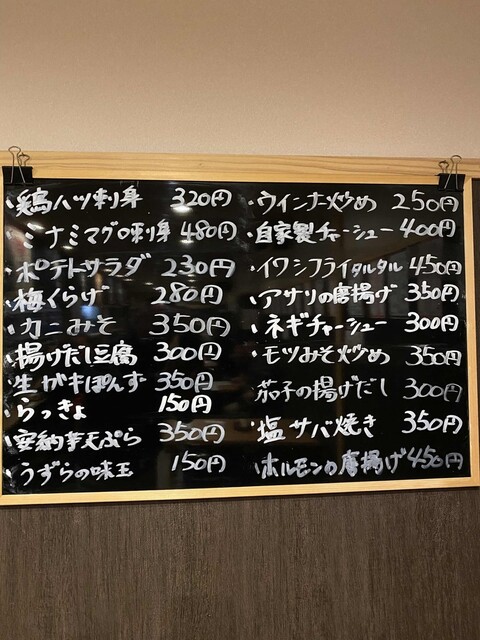 ・鶏ハツ刺身 320円
・ミナミマグロ刺身 480円
・ポテトサラダ 230円
・梅くらげ 280円
・カニみそ 350円
・揚げだし豆腐 300円
・生ガキぽんず 350円
・らっきょ 150円
・安納芋天ぷら 350円
・うずらの味玉 150円
・ウインナー炒め 250円
・自家製チャーシュー 400円
・イワシフライタルタル 450円
・アサリの唐揚げ 350円
・ネギチャーシュー 300円
・モツみそ炒め 350円
茄子の揚げだし 300円
・塩サバ焼き 350円
・ホルモンの唐揚げ 450円